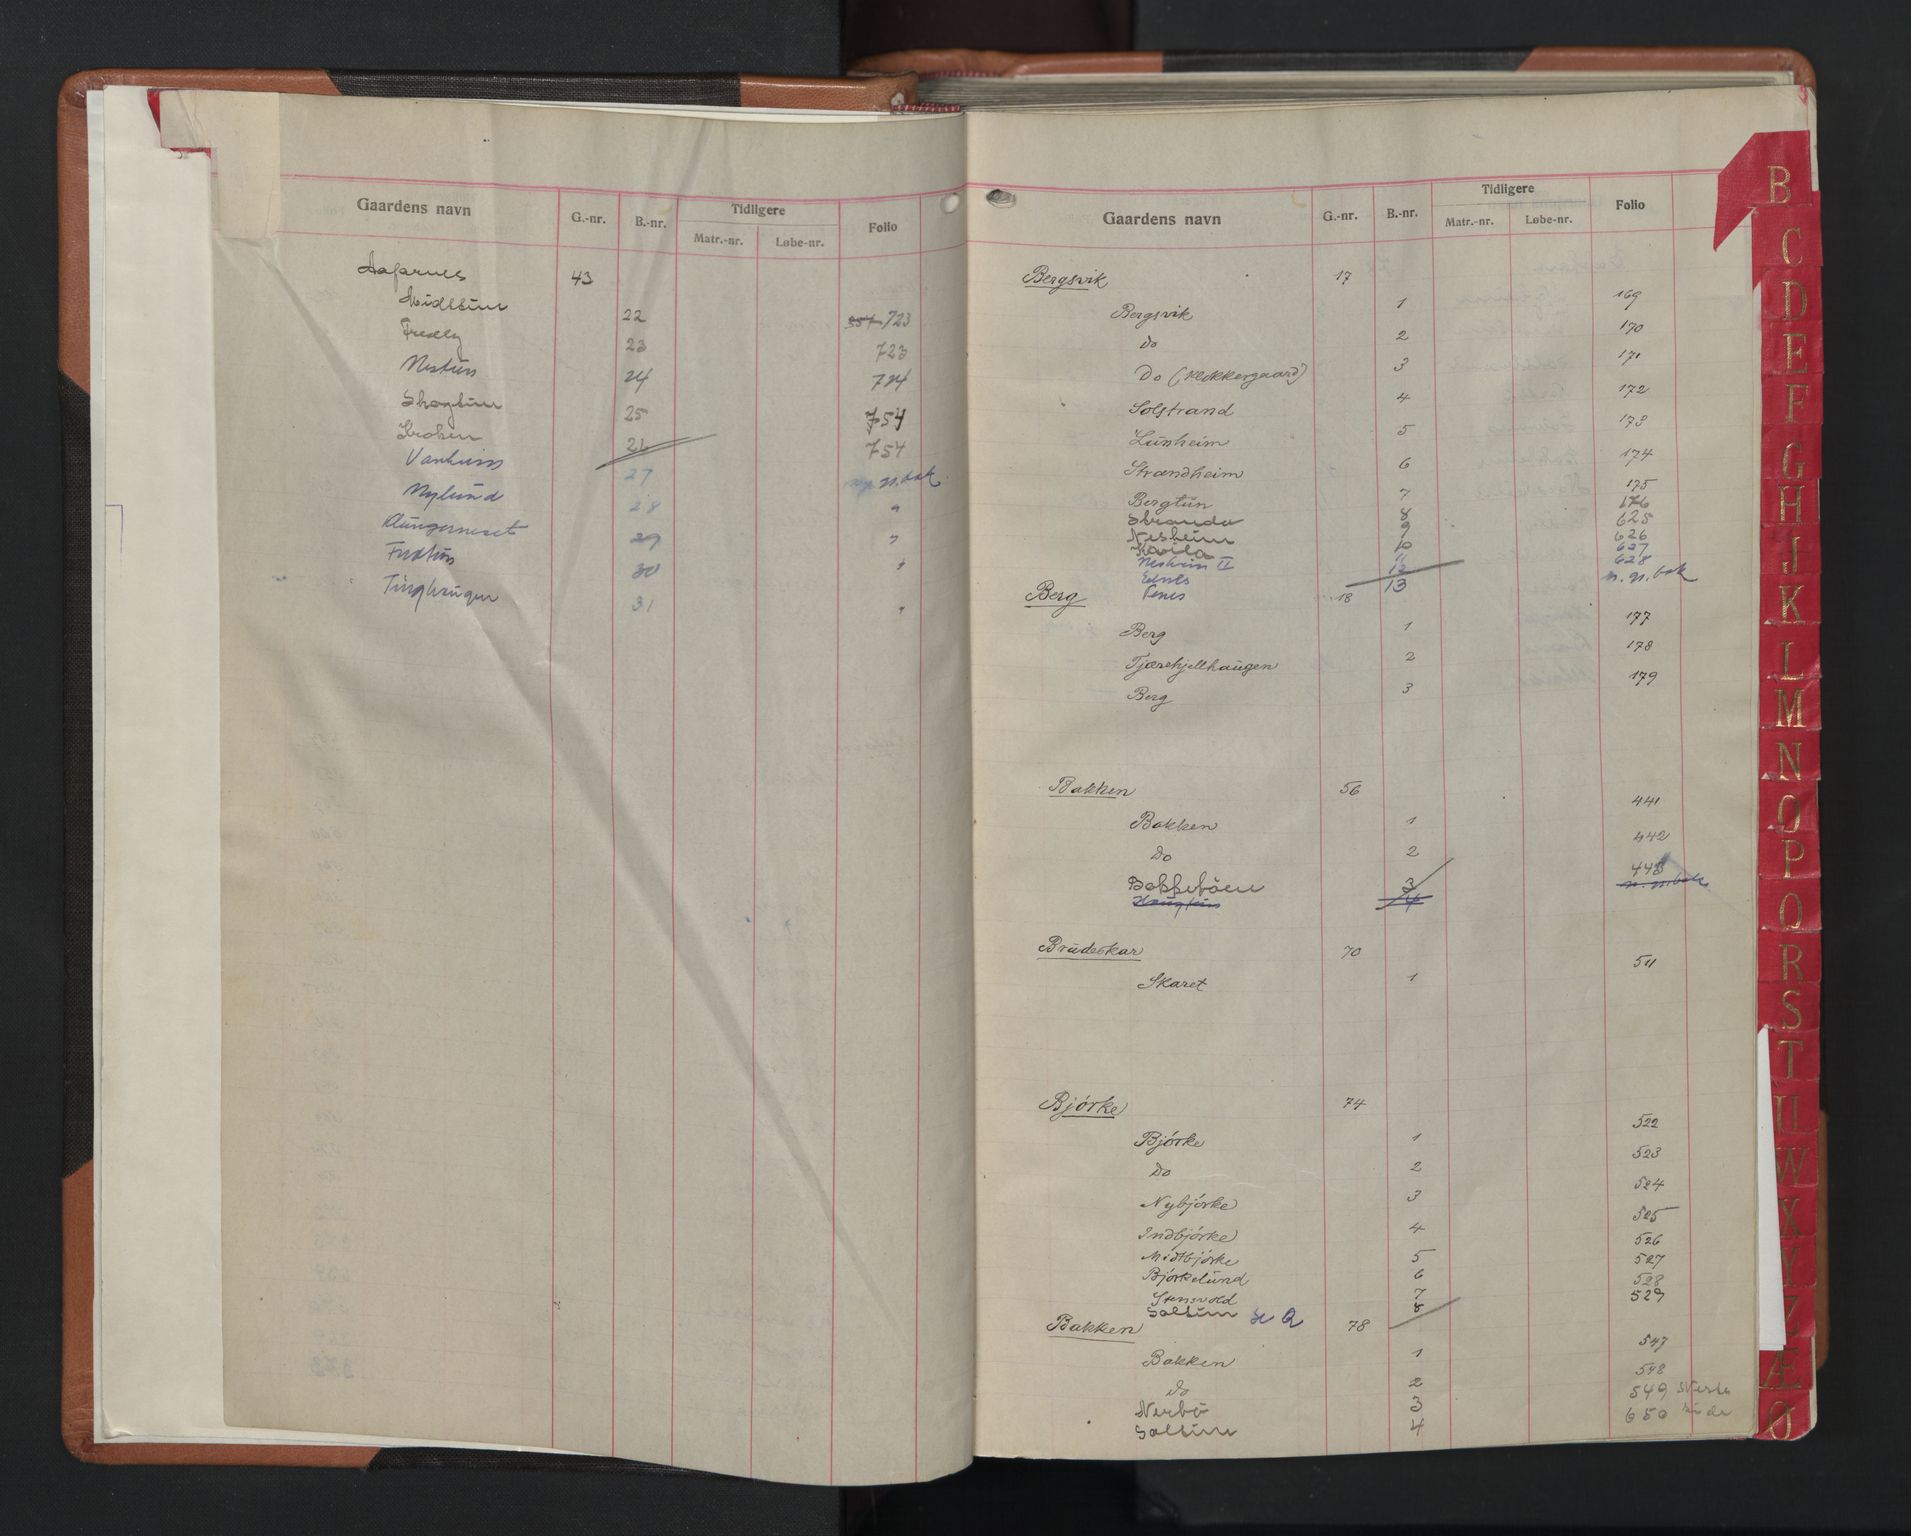 Gaardens navn G.-nr. B.-nr. Tidligere Folio
Matr.-nr. Løbe-nr.
43
Midttun 22 723
Fredly 23 723
Nestun 24 724
Skogtun 25 754
Kroken 26 754
27 n. bok
Nylund 28 "
Klungerneset 29 "
Fredtun 30 "
Tinghaugen 31 "
Gaardens navn G.-nr. B.-nr. Tidligere Folio
Matr.-nr. Løbe-nr.
Bergsvik 17
Bergsvik 1 169
Do 2 170
Do (Klokkergaard) 3 171
Solstrand 4 172
Lunheim 5 173
Strandheim 6 174
Bergtun 7 175
Stranda 8 176
Nesheim 9 625
Kvila 10 626
Nesheim II 11 627
12 628
Venes 13 n. n. bok
Berg 18
Berg 1 177
Tjærehjellhaugen 2 178
Berg 3 179
Bakken 56
Bakken 1 441
Do 2 442
Bakkebøen 3 443
Haugtun 4 n. n. bok
Brudeskar 70
Skaret 1 511
Bjørke 74
Bjørke 1 522
Do 2 523
Nybjørke 3 524
Indbjørke 4 525
Midtbjørke 5 526
Bjørkelund 6 527
Stensvold 7 528
Soltun 8 529
Bakken 78
Bakken 1 547
Do 2 548
Nerbø 3 549
Soltun 4 650
B
C
D
E
F
G
H
J
K
L
M
N
O
P
Q
R
S
T
U
W
X
Y
Z
Æ
Ø